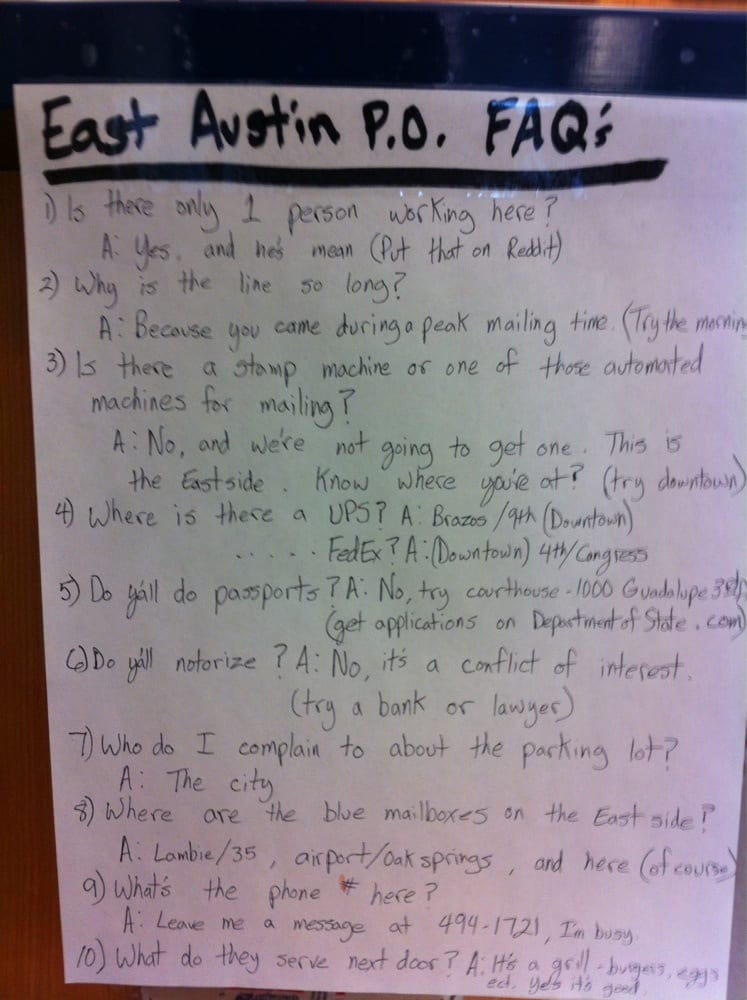 East Austin P.O. FAQ's
1) Is there only 1 person working here?
A: Yes, and he's mean (Put that on Reddit)
2) Why is the line so long?
A: Because you came during a peak mailing time. (Try the mornin
3) Is there a stamp machine or one of those automated
machines for mailing?
A: No, and we're not going to get one. This is
the Eastside. Know where you're at? (try downtown)
4) Where is there a UPS? A: Brazos/9th (Downtown)
..... FedEx? A: (Downtown) 4th/Congress
5) Do y'all do passports? A: No, try courthouse-1000 Guadalupe
(get applications on Department of State.com)
6) Do y'all notorize? A: No, it's a conflict of interest.
(try a bank or lawyer)
7) Who do I complain to about the parking lot?
A: The city
8) Where are the blue mailboxes on the East side?
A: Lambie/35, airport/Oak springs, and here (of course)
9) What's the phone # here?
A: Leave me a message at 494-1721, I'm busy.
10) What do they serve next door? A: It's a grill-burgers, eggs
ect. Yes it's good.